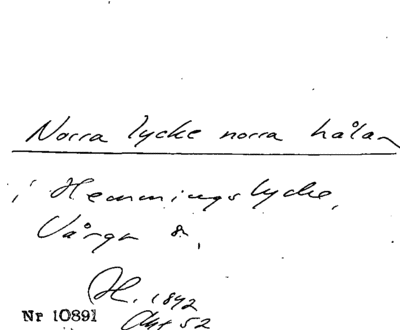 Norra lycke norra håla
i Hemmingslycke,
Vårgn s.,
H. 1892
Akt 52
Nr 10891